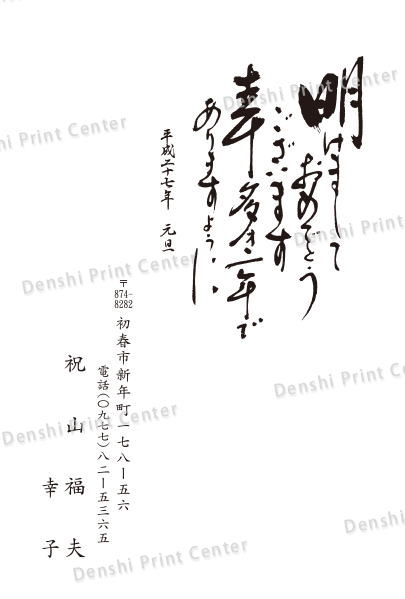 明けまして
おめでとう
ございます
幸多き年で
ありますように
平成二十七年 元旦
〒874-8282
初春市新年町一七八ー五六
電話(〇九七七)八二ー五三六五
祝山福夫
幸子
Denshi Print Center
Denshi Print Center
Denshi Print Center
Denshi Print Center
Denshi Print Center
Denshi Print Center
Denshi Print Center
Denshi Print Center
Denshi Print Center